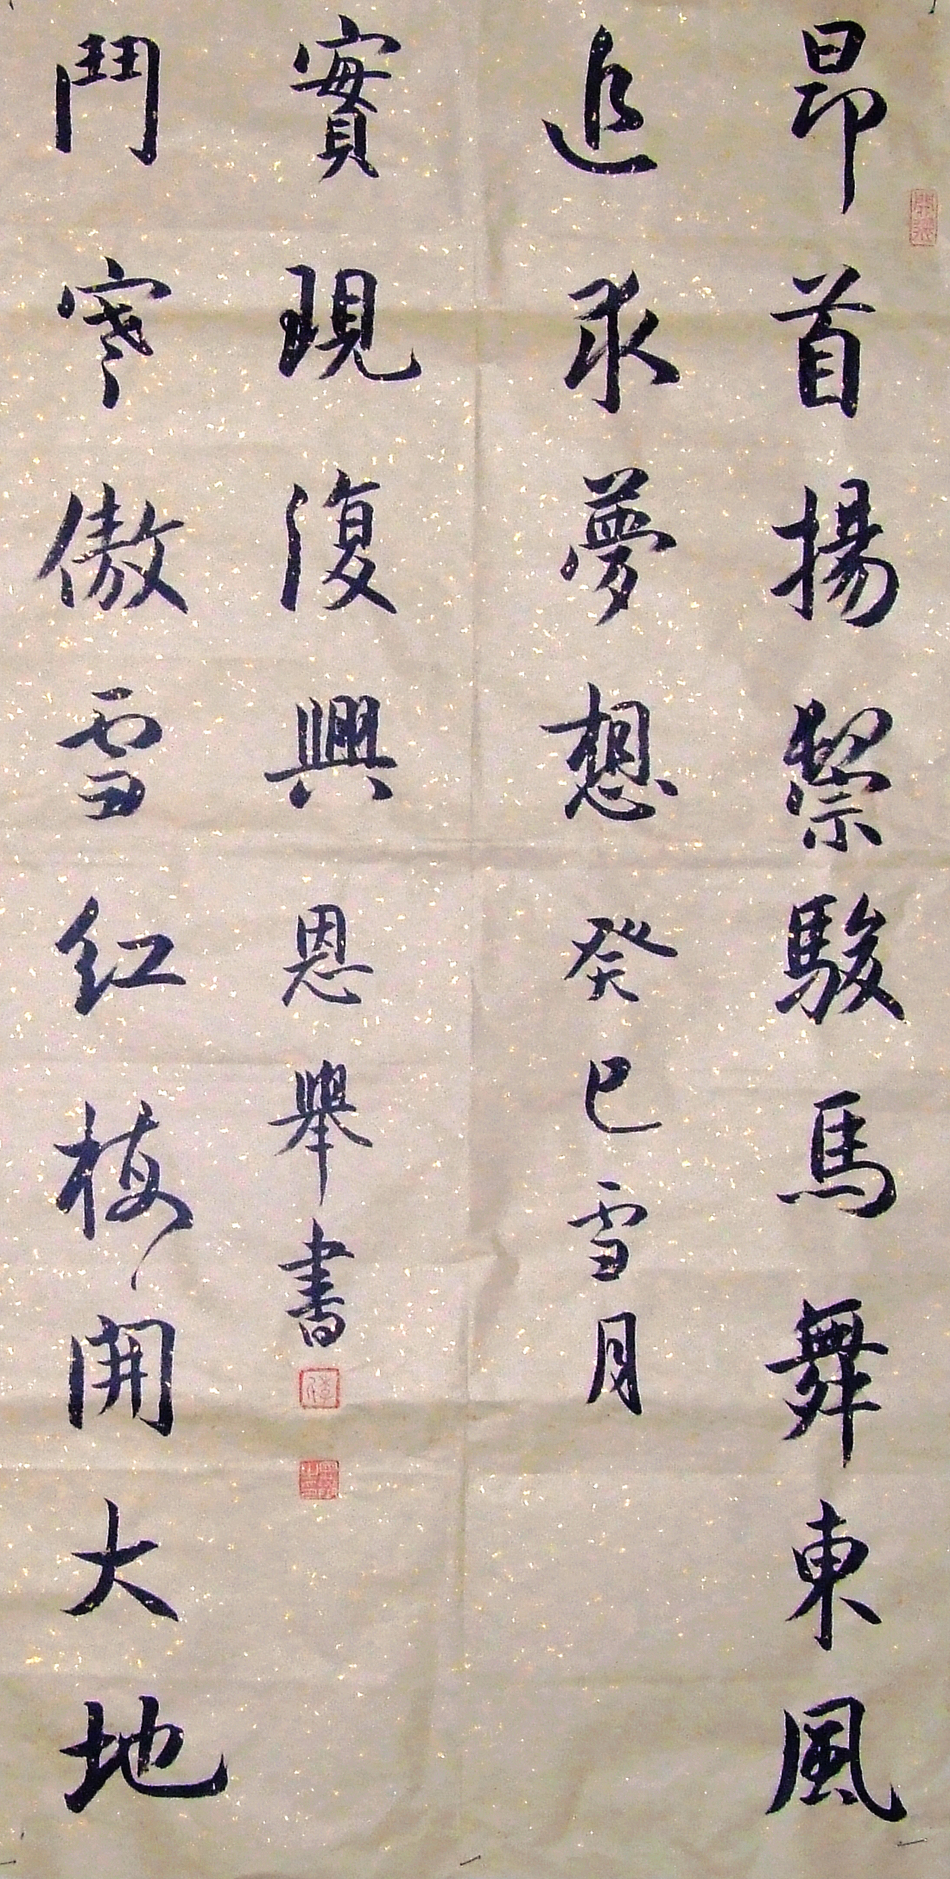 昂首揚鬃駿馬舞東風
追求夢想 癸巳雪月
鬥寒傲雪紅梅開大地
實現復興 恩舉書